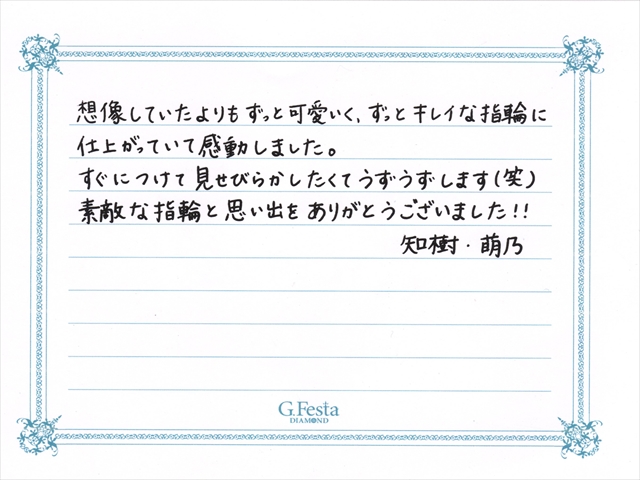 想像していたよりもずっと可愛いく、ずっとキレイな指輪に
仕上がっていて感動しました。
すぐにつけて見せびらかしたくてうずうずします(笑)
素敵な指輪と思い出をありがとうございました!!
知樹・萌乃
G.Festa
DIAMOND